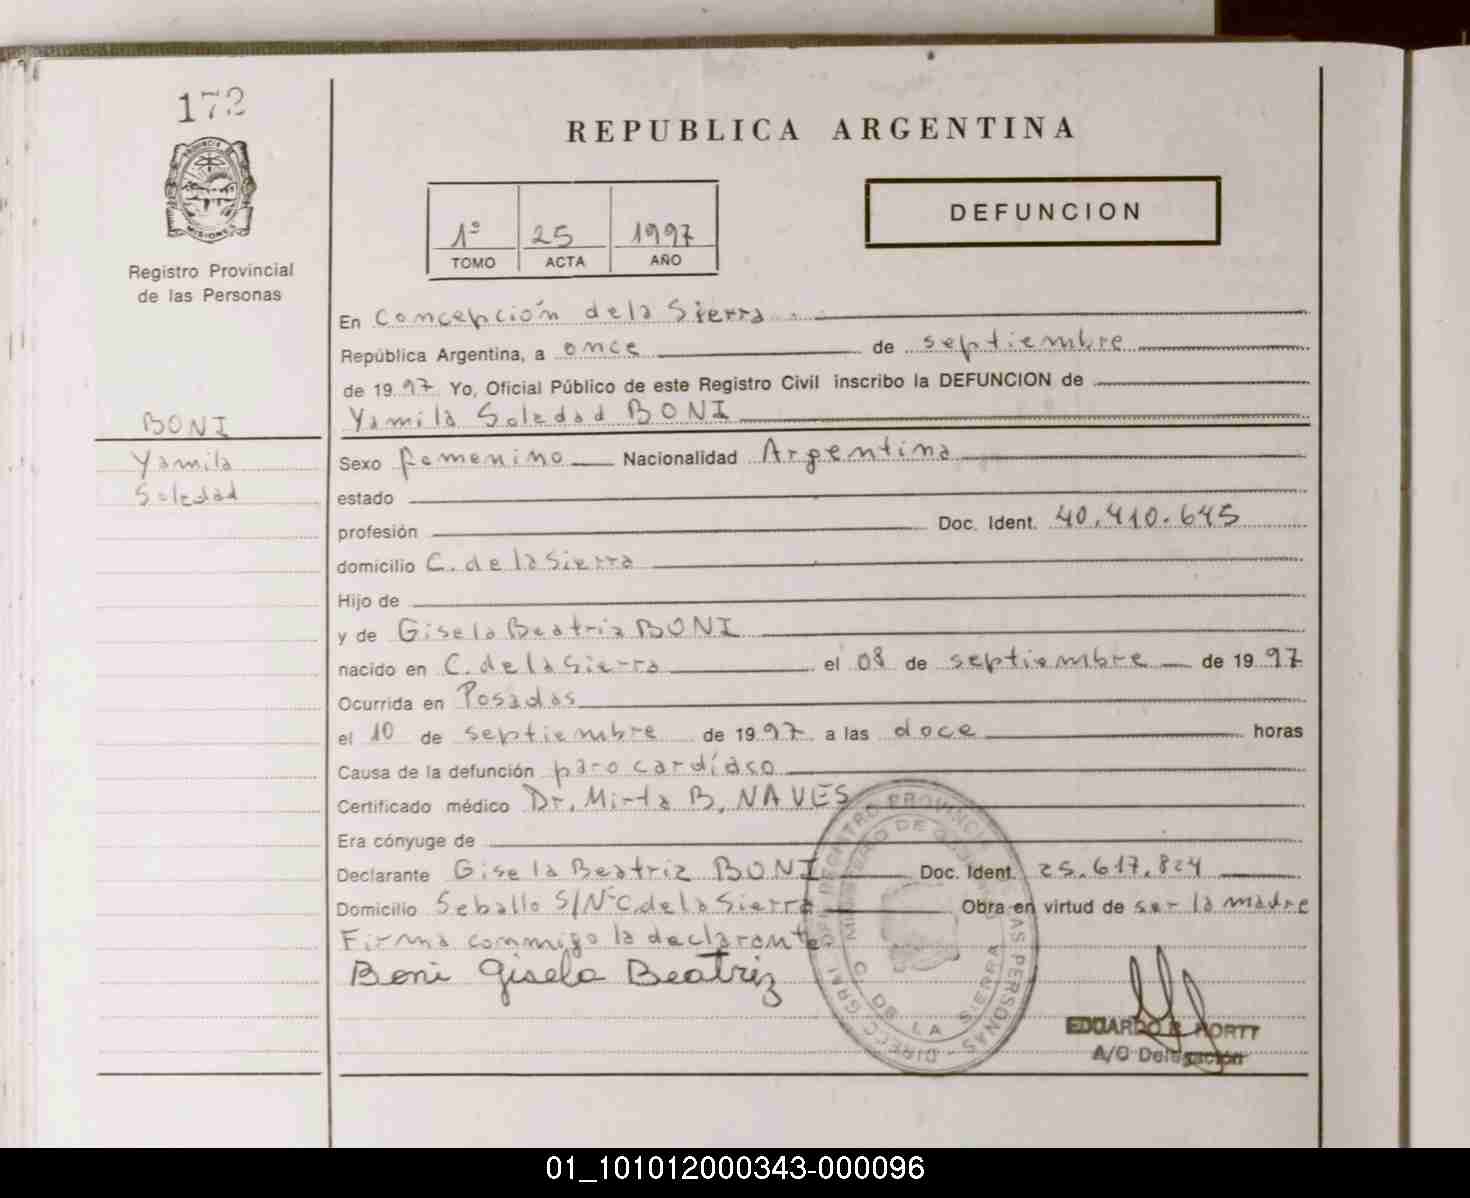 172
PROVINCIA DE
MISIONES
Registro Provincial
de las Personas
REPUBLICA ARGENTINA
DEFUNCION
1º 25 1997
TOMO ACTA AÑO
En Concepción de la Sierra
República Argentina, a once de septiembre
de 1997 Yo, Oficial Público de este Registro Civil inscribo la DEFUNCION de
Yamila Soledad BONI
BONI
Yamila
Soledad
Sexo femenino Nacionalidad Argentina
estado
profesión Doc. Ident. 40.410.645
domicilio C. de la Sierra
Hijo de
y de Gisela Beatriz BONI
nacido en C. de la Sierra el 08 de septiembre de 1997
Ocurrida en Posadas
el 10 de septiembre de 1997 a las doce horas
Causa de la defunción paro cardíaco
Certificado médico Dr. Mirta B. NAVES
Era cónyuge de
Declarante Gisela Beatriz BONI Doc. Ident. 25.617.824
Domicilio Seballo S/Nº C. de la Sierra Obra en virtud de ser la madre
Firma conmigo la declarante
Boni Gisela Beatriz
DIRECC. GRAL. DEL REGISTRO PROVINCIAL DE LAS PERSONAS
MINISTERIO DE GOBIERNO
C. DE LA SIERRA
EDUARDO
A/C Delegación
01_101012000343-000096